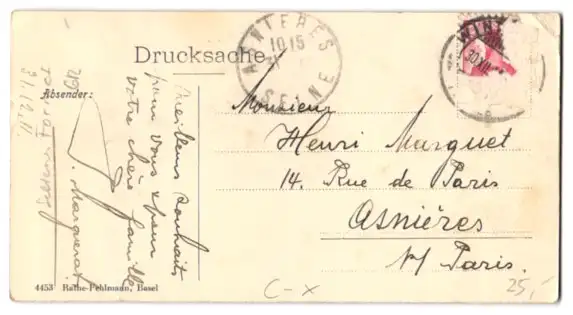 Drucksache
ASNIERES
10 15
SEINE
WINT
30 XII
Absender:
Meilleurs souhaits
pour vous & pour
votre chère famille
J. Marguerat
31.12.11
Monsieur
Henri Marguet
14. Rue de Paris
Asnières
s/ Paris.
4453 Rathe-Fehlmann, Basel
C-x
25,-